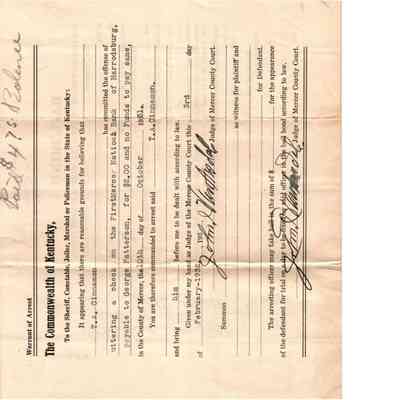 Warrant of Arrest
The Commonwealth of Kentucky,
To the Sheriff, Constable, Jailer, Marshal or Policeman in the State of Kentucky:
It appearing that there are reasonable grounds for believing that
T.A. Cinnamon
has committed the offense of
uttering a check on the First Mercer National Bank of Harrodsburg,
payable to George Patterson, for $2.00 and no funds to pay same,
in the County of Mercer, the day of October 1931.
You are therefore commanded to arrest said T.A. Cinnamon.
and bring him before me to be dealt with according to law.
Given under my hand as Judge of the Mercer County Court this 3rd day
of February-1932, 193
Judge of Mercer County Court.
Summon as witness for plaintiff and
for Defendant.
The arresting officer may take bail in the sum of $ for the appearance
of the defendant for trial on the bail bond according to law.
Judge of Mercer County Court.
Paid $4.75 Balance